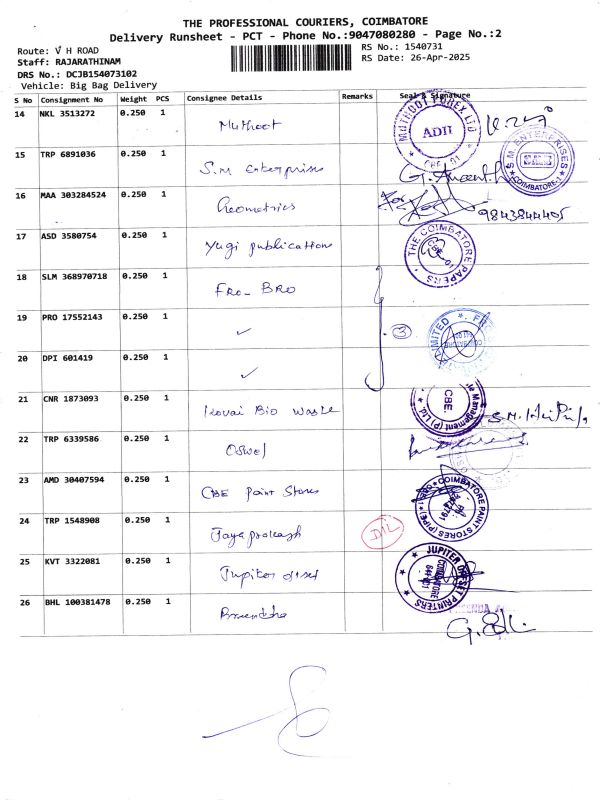 THE PROFESSIONAL COURIERS, COIMBATORE
Delivery Runsheet - PCT - Phone No.:9047080280 - Page No.:2
Route: V H ROAD
RS No.: 1540731
Staff: RAJARATHINAM
RS Date: 26-Apr-2025
DRS No.: DCJB154073102
Vehicle: Big Bag Delivery
S No Consignment No Weight PCS Consignee Details Remarks Seal & Signature
14 NKL 3513272 0.250 1 Muthoot MUTHOOT FOREX LTD ADII CBE 01
15 TRP 6891036 0.250 1 S.M Enterprises S.M. ENTERPRISES COIMBATORE-1
16 MAA 303284524 0.250 1 Geometrics 9843844405
17 ASD 3580754 0.250 1 Yugi publication THE COIMBATORE PAPERS CBE-01
18 SLM 368970718 0.250 1 FRO-BRO
19 PRO 17552143 0.250 1 ✓ 3
20 DPI 601419 0.250 1 ✓
21 CNR 1873093 0.250 1 Kovai Bio Waste Management (P) Ltd. CBE.
22 TRP 6339586 0.250 1 Oswel
23 AMD 30407594 0.250 1 CBE Paint Stores COIMBATORE PAINT STORES (PIPE)
24 TRP 1548908 0.250 1 Jayaprakash D/L
25 KVT 3322081 0.250 1 Jupiter offset JUPITER OFFSET PRINTERS COIMBATORE 641 001
26 BHL 100381478 0.250 1